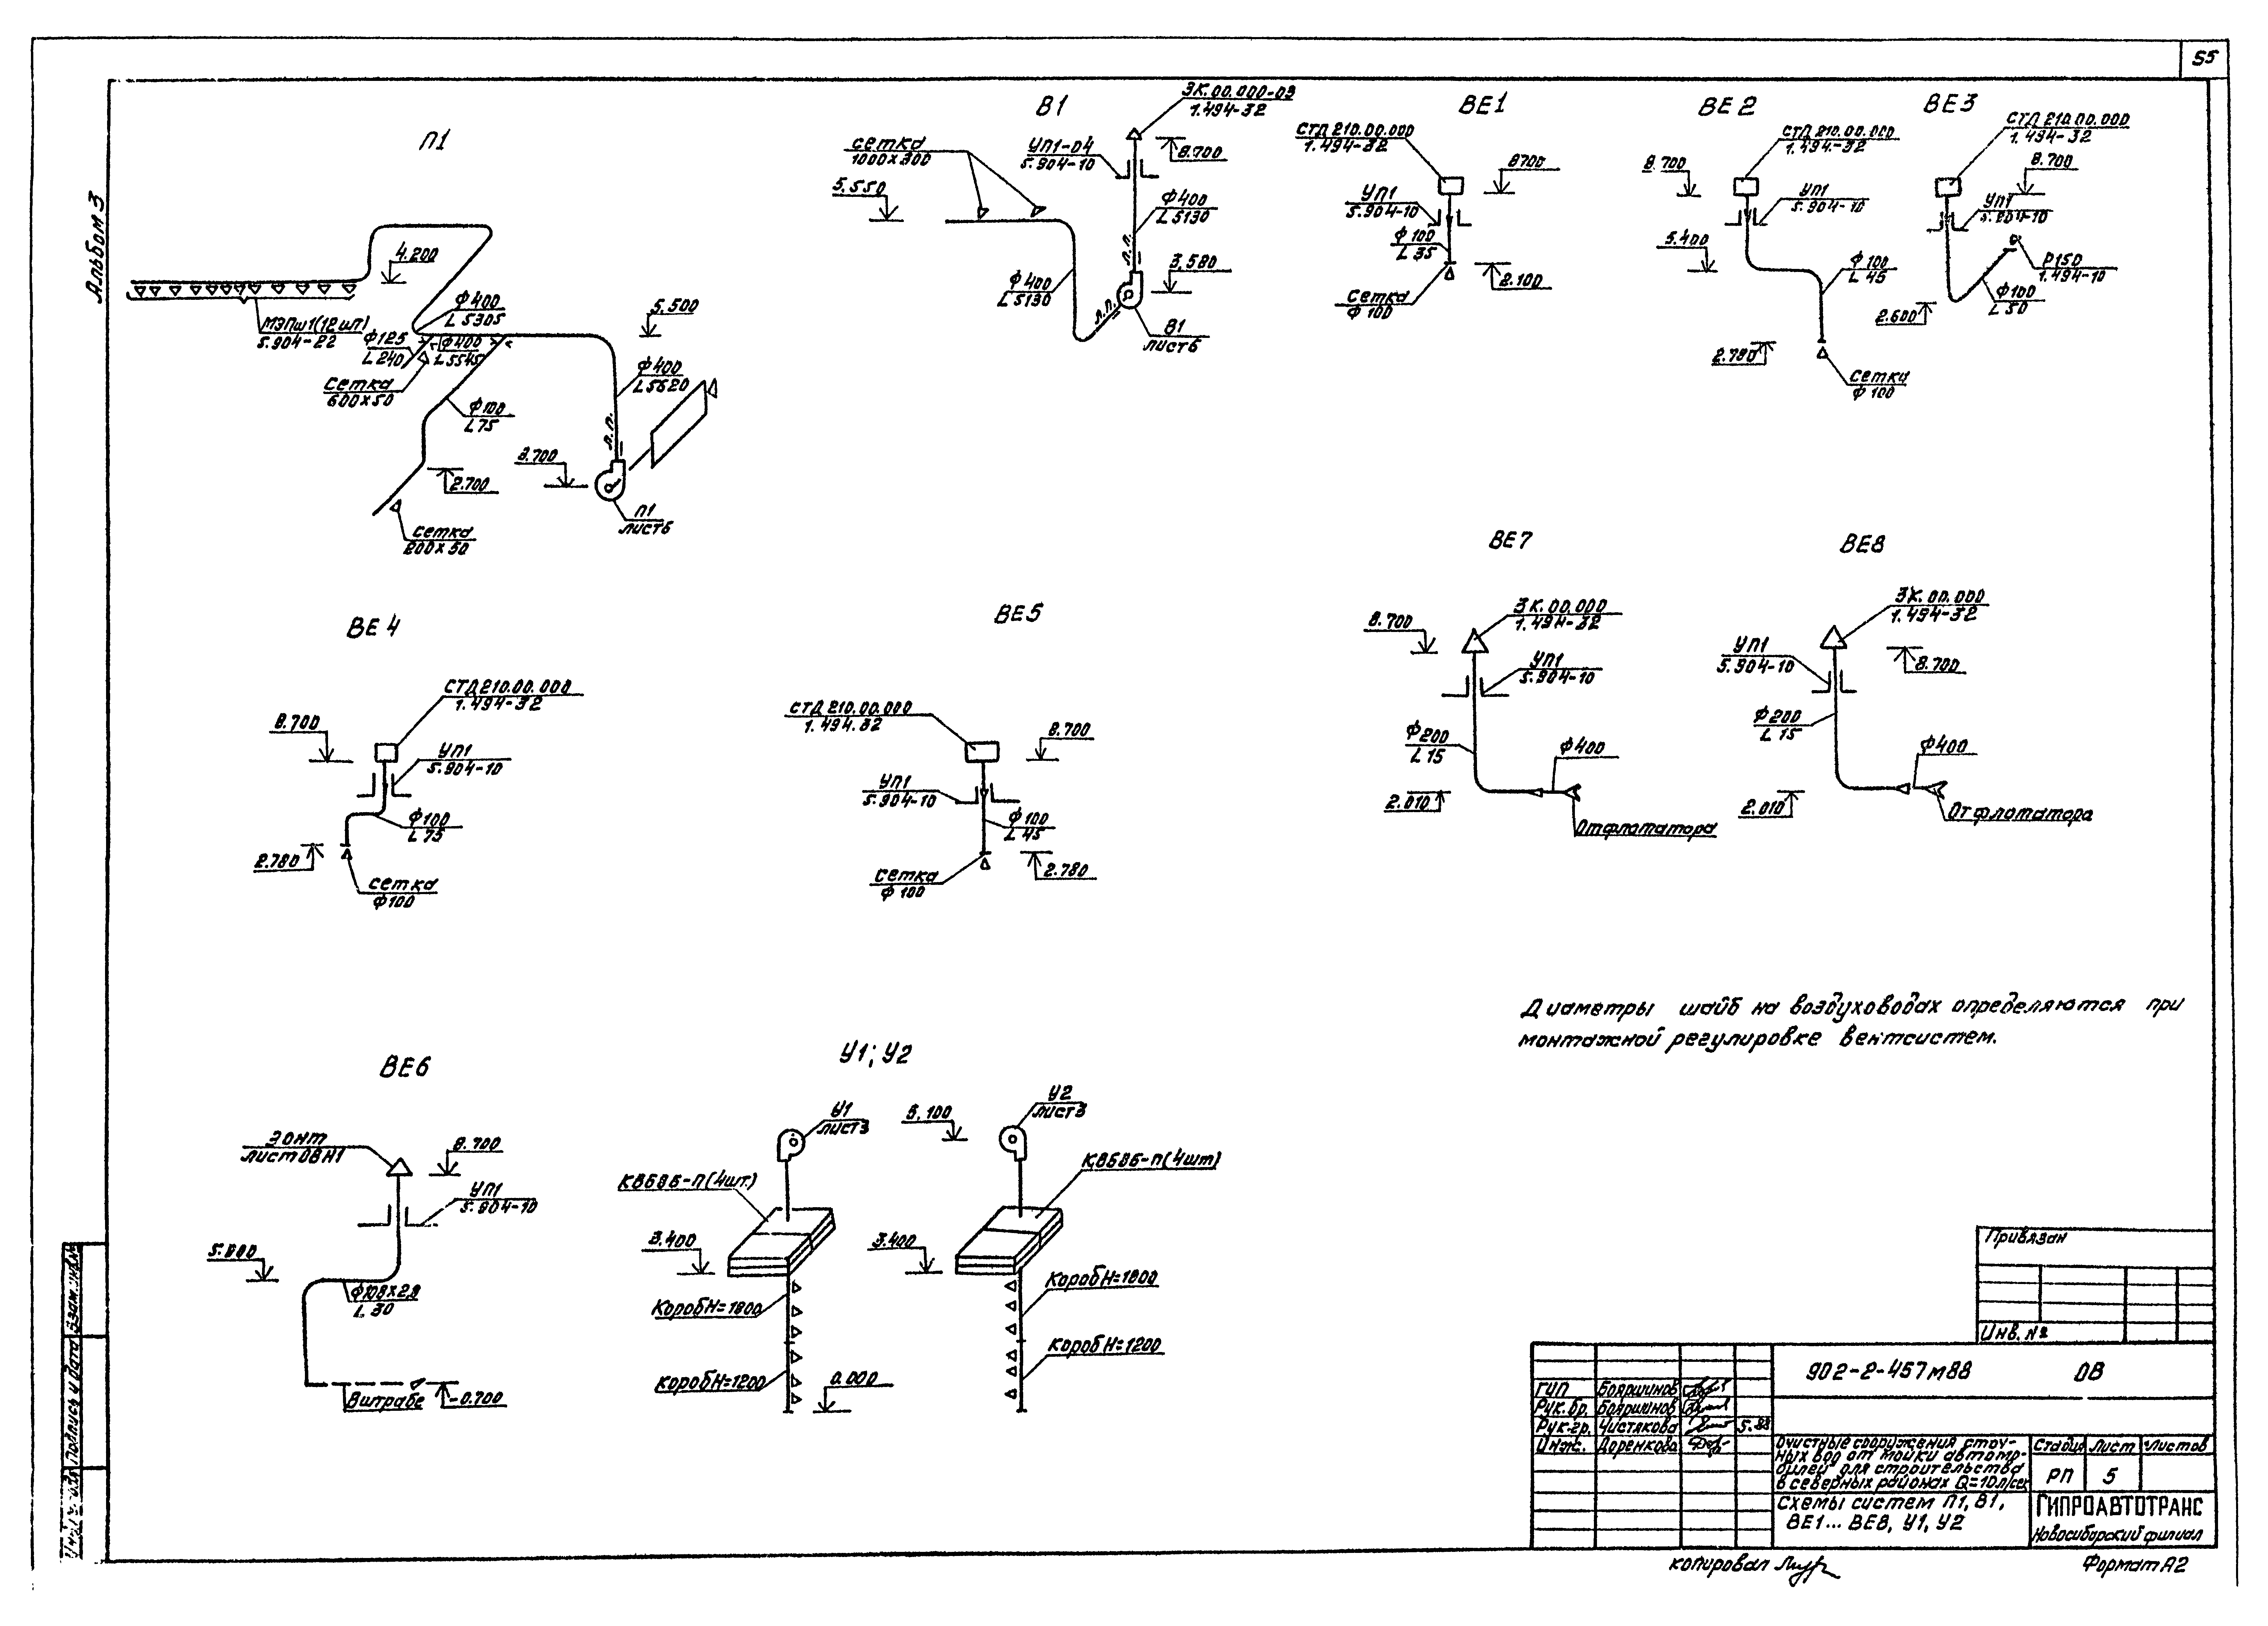 55
Альбом 3
П1
4.200
МЭПш1(12шт)
5.904-22
ф400
L5305
ф125
L240
ф400
L5545
сетка
600×50
ф100
L75
2.700
сетка
200×50
5.500
ф400
L5620
п.п.
3.700
П1
лист6
В1
сетка
1000×300
5.550
УП1-04
5.904-10
ЗК.00.000-03
1.494-32
8.700
ф400
L5130
п.п.
3.580
ф400
L5130
п.п.
В1
лист6
ВЕ1
СТД210.00.000
1.494-32
8700
УП1
5.904-10
ф100
L35
2.100
сетка
ф100
ВЕ2
СТД210.00.000
1.494-32
8.700
УП1
5.904-10
5.400
ф100
L45
2.780
сетка
ф100
ВЕ3
СТД210.00.000
1.494-32
8.700
УП1
5.904-10
Р150
1.494-10
ф100
L50
2.600
ВЕ4
СТД210.00.000
1.494-32
8.700
УП1
5.904-10
ф100
L75
2.780
сетка
ф100
ВЕ5
СТД210.00.000
1.494.32
8.700
УП1
5.904-10
ф100
L45
сетка
ф100
2.780
ВЕ7
8.700
ЗК.00.000
1.494-32
УП1
5.904-10
ф200
L15
ф400
2.010
От флотатора
ВЕ8
ЗК.00.000
1.494-32
УП1
5.904-10
8.700
ф200
L15
ф400
2.010
От флотатора
Диаметры шайб на воздуховодах определяются при
монтажной регулировке вентсистем.
ВЕ6
Зонт
лист ОВН1
8.700
УП1
5.904-10
ф108×2,8
L30
В штрабе
-0.700
У1; У2
У1
лист3
КВБ8Б-П(4шт.)
3.400
Короб Н=1800
Короб Н=1200
0.000
5.100
У2
лист3
КВБ8Б-П(4шт)
3.400
Короб Н=1800
Короб Н=1200
Привязан
Инв. №
902-2-457м88 ОВ
ГИП Бояршинов
Рук.бр. Бояршинов
Рук.гр. Чистякова 5.88
Инж. Доренкова
Очистные сооружения сточ-
ных вод от мойки автомо-
билей для строительства
в северных районах Q=10л/сек
Стадия Лист Листов
РП 5
Схемы систем П1, В1,
ВЕ1... ВЕ8, У1, У2
ГИПРОАВТОТРАНС
Новосибирский филиал
копировал
Формат А2
Взам.инв.№
Подпись и дата